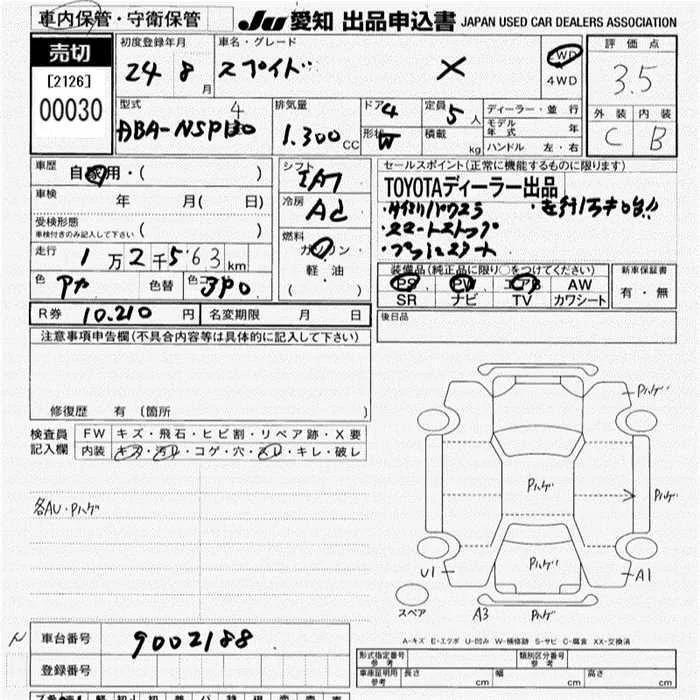 車内保管・守衛保管
JU 愛知 出品申込書 JAPAN USED CAR DEALERS ASSOCIATION
売切
[2126]
00030
初度登録年月
24 8 月
車名・グレード
スペイド X
2WD
4WD
評価点
3.5
外装 内装
C B
型式
ABA-NSP140
排気量
1.300 CC
ドア 4
形状 W
定員 5 人
積載 kg
ディーラー・並行
モデル年式 年
ハンドル 左・右
車歴 自家用・( )
車検 年 月( 日)
受検形態
車検付きのみ記入して下さい ( )
走行 1万2千563km
色 アカ 色替 色コード 3P0
シフト IAT
冷房 AC
燃料
ガソリン・
軽・油
( )
セールスポイント(正常に機能するものに限ります)
TOYOTAディーラー出品
・スマートストップ
・プッシュスタート
・走行1万キロ台!!
装備品(純正品に限り○をつけてください)
PS PW エアB AW
SR ナビ TV カワシート
新車保証書
有・無
R券 10.210 円 名変期限 月 日
後日品
注意事項申告欄(不具合内容等は具体的に記入して下さい)
修復歴 有(箇所 )
検査員
記入欄
FW キズ・飛石・ヒビ割・リペア跡・X要
内装 キズ・汚レ・コゲ・穴・スレ・キレ・破レ
各AU・Pハゲ
Pハゲ
Pハゲ
Pハゲ
Pハゲ
U1
A1
スペア
A3 Pハゲ
A-キズ E-エクボ U-凹み W-補修跡 S-サビ C-腐食 XX-交換済
車台番号 9002188
登録番号
形式指定番号
参考
類別区分番号
参考
車庫証明用
参考
長さ cm 幅 cm 高さ cm